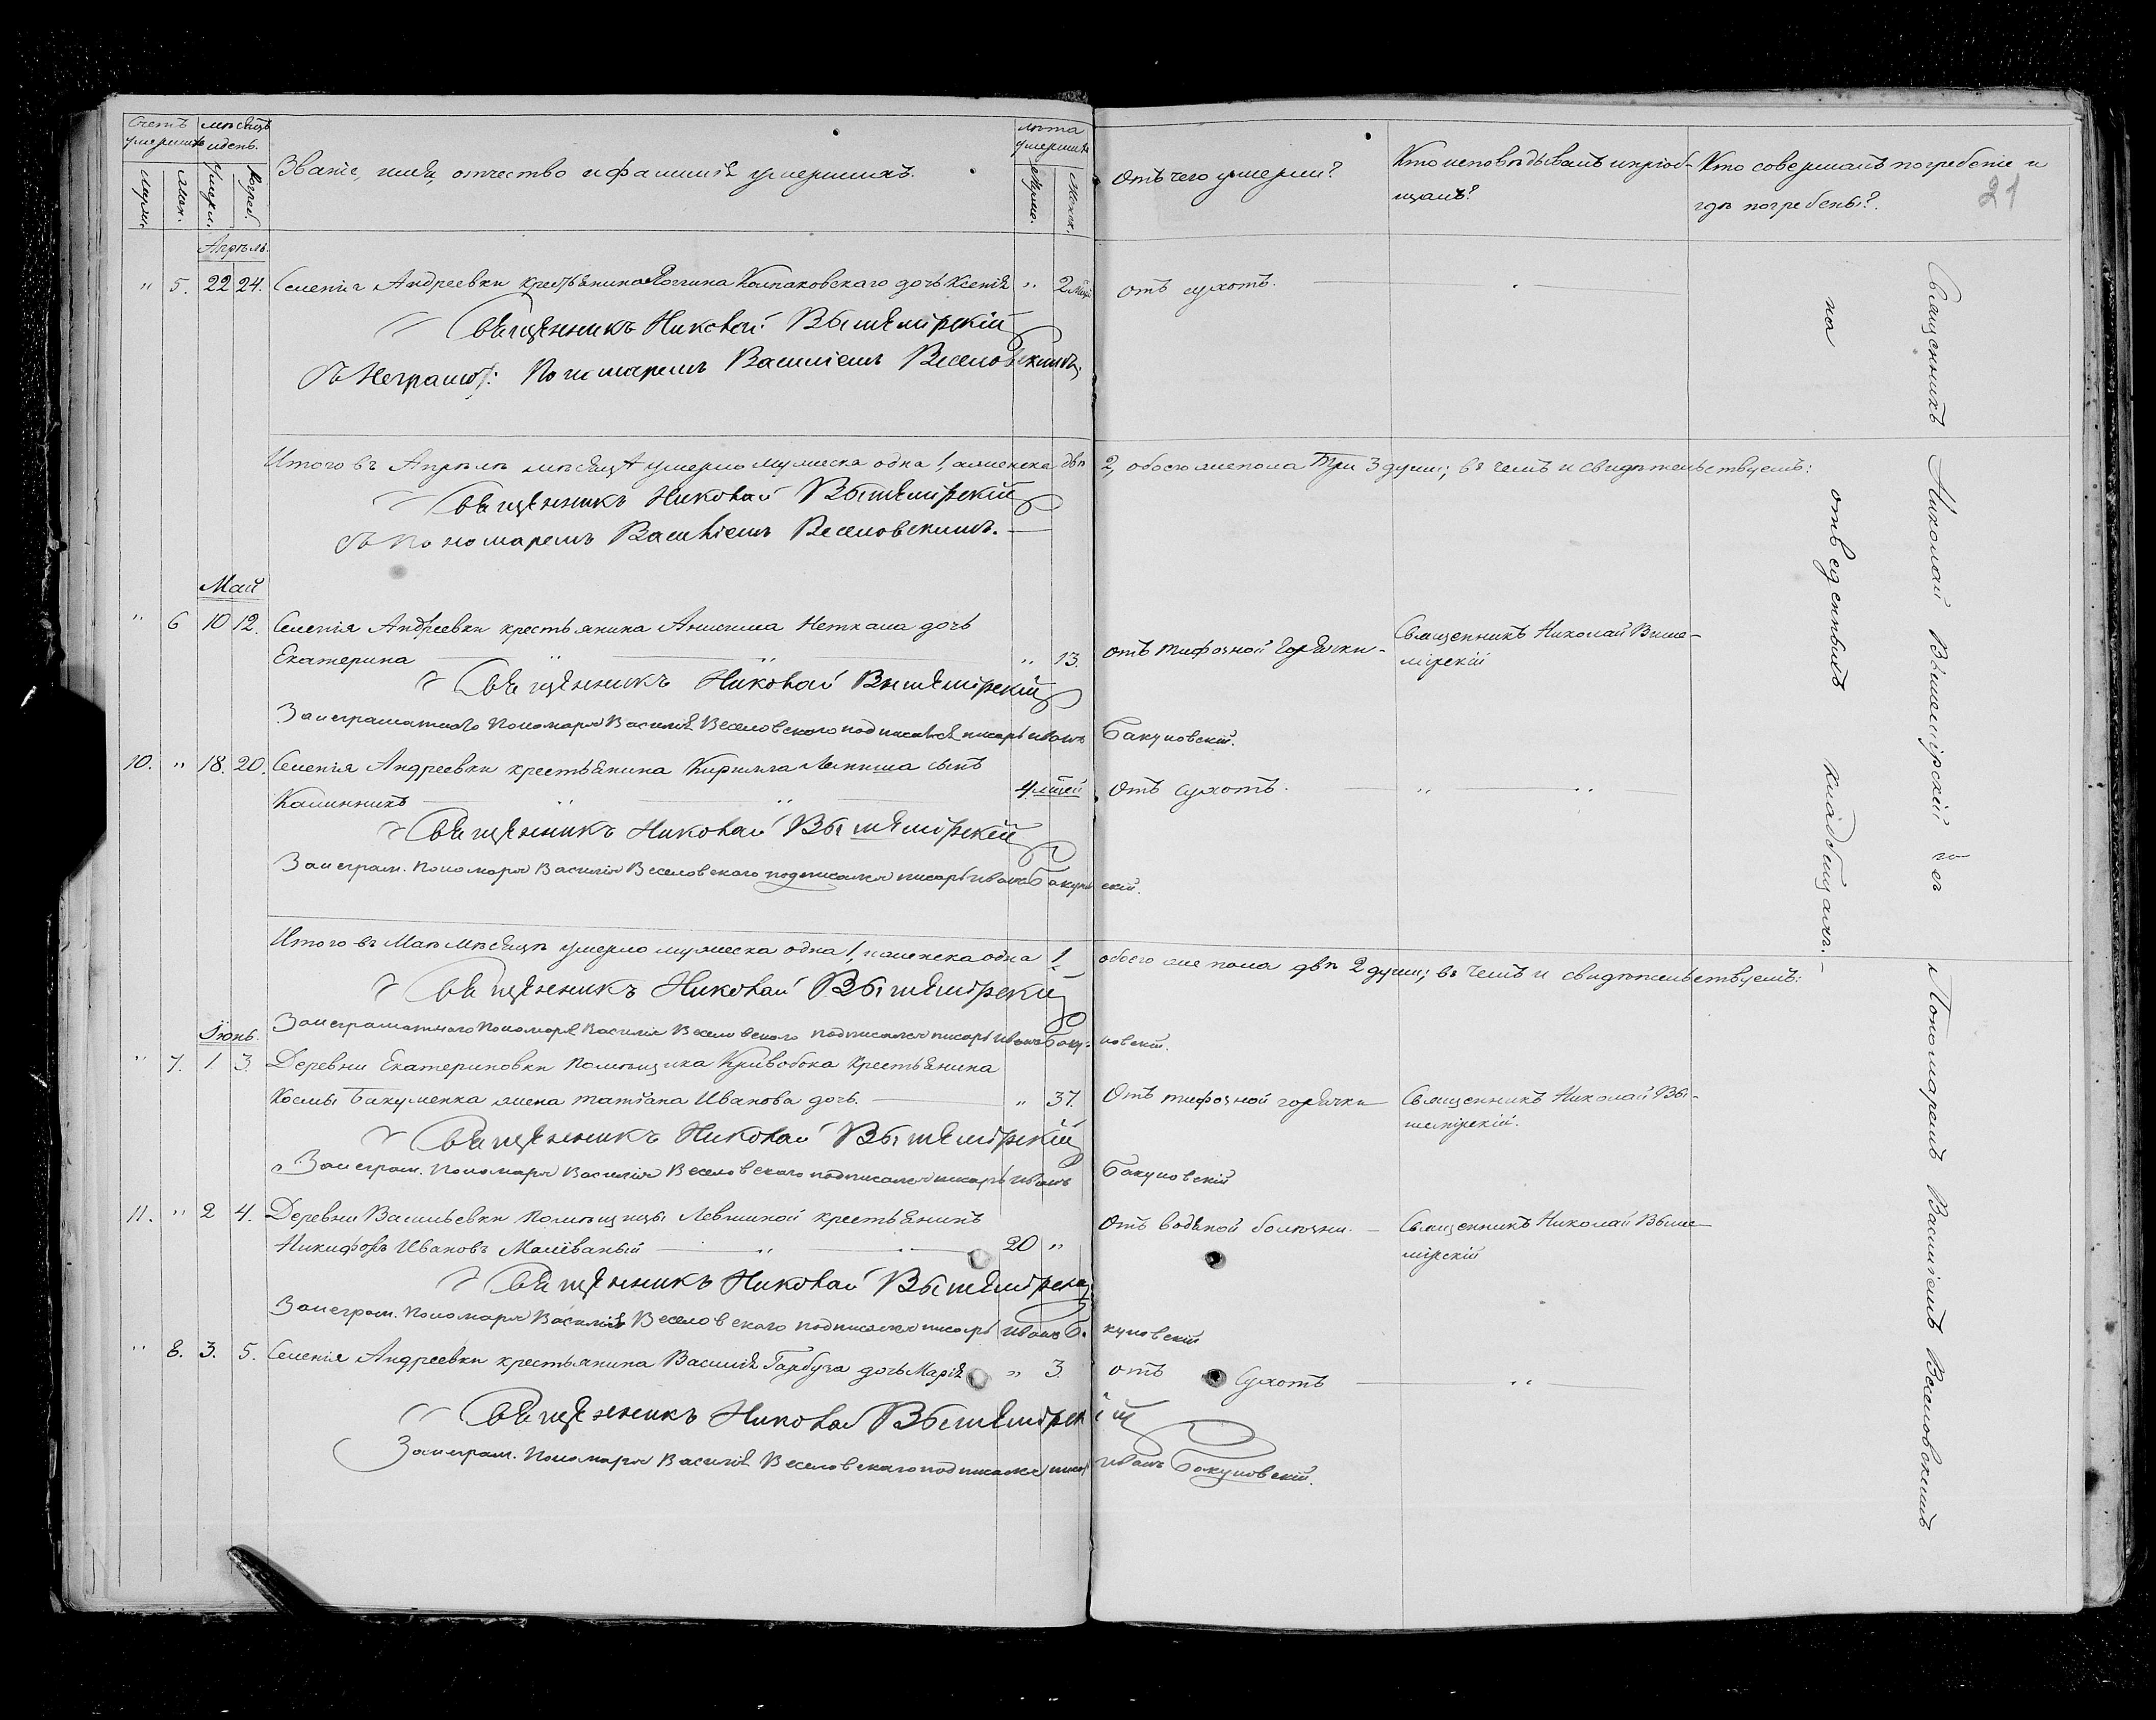 Счетъ умершихъ
мѣсяцъ и день.
Званіе, имя, отчество и фамилія умершихъ.
лѣта умершихъ
Отъ чего умерли?
Кто исповѣдывалъ и пріоб-
щалъ?
Кто совершалъ погребеніе и
гдѣ погребены?
21
Муж.
Жен.
Умерл.
Погреб.
Муж.
Женск.
Апрѣль.
" 5. 22 24. Селенія Андреевки крестьянина Колпаковскаго дочь Ксенія " 2 отъ сухотъ.
Священникъ Николай Вышемірскій
съ Неграмот: Пономаремъ Василіемъ Веселовскимъ
Итого въ Апрѣлѣ мѣсяцѣ умерло мужеска одна 1, а женска двѣ 2, обоего же пола Три 3 души; въ чемъ и свидѣтельствуемъ:
Священникъ Николай Вышемірскій
съ Пономаремъ Василіемъ Веселовскимъ.
Май
" 6 10 12. Селенія Андреевки крестьянина дочь
Екатерина " 13. отъ тифозной горячки. Священникъ Николай Выше-
мірскій
Священникъ Николай Вышемірскій
За неграмотнаго Пономаря Василія Веселовскаго подписался писарь Иванъ Бакуновскій.
10. " 18. 20. Селенія Андреевки крестьянина Кирилла сынъ
Калинникъ 4 Отъ сухотъ.
Священникъ Николай Вышемірскій
За неграм. Пономаря Василія Веселовскаго подписался писарь Иванъ Бакуновскій.
Итого въ Маѣ мѣсяцѣ умерло мужеска одна 1, и женска одна 1 обоего же пола двѣ 2 души; въ чемъ и свидѣтельствуемъ:
Священникъ Николай Вышемірскій
За неграмотнаго Пономаря Василія Веселовскаго подписался писарь Иванъ Бакуновскій.
Іюнь.
" 7. 1 3. Деревни Екатериновки Помѣщика Кривобока Крестьянина
Космы Бакуменка жена Татіана Иванова дочь. " 37. Отъ тифозной горячки Священникъ Николай Вы-
шемірскій.
Священникъ Николай Вышемірскій
За неграм. Пономаря Василія Веселовскаго подписался писарь Иванъ Бакуновскій
11. " 2 4. Деревни Васильевки Помѣщицы Левшиной крестьянинъ
Никифоръ Ивановъ Малёваный 20 " Отъ водяной болѣзни. Священникъ Николай Выше-
мірскій
Священникъ Николай Вышемірскій
За неграм. Пономаря Василія Веселовскаго подписался писарь Иванъ Бакуновскій
" 8. 3. 5. Селенія Андреевки крестьянина Василія Гарбуза дочь Марія " 3. отъ Сухотъ
Священникъ Николай Вышемірскій
За неграм. Пономаря Василія Веселовскаго подписался писарь Иванъ Бакуновскій.
Священникъ Николай Вышемірскій съ Пономаремъ Василіемъ Веселовскимъ
на отведенныхъ кладбищахъ.